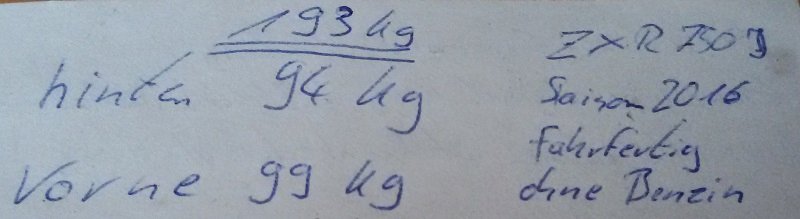 193 kg
hinten 94 kg
Vorne 99 kg
ZXR 750 J
Saison 2016
Fahrfertig
ohne Benzin